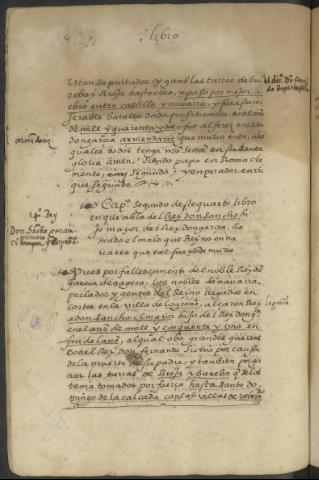 libro
estan sepultados y ganó las tierras de bu
reba y Rioja hasta ebro, y puso por mojon a
ebro entre castilla y navarra; y fue esta mi
serable batalla dada por setiembre en el año
de mill y quarenta y fue su alferez en esta
don garcia armendarez que murio en ella
quales todos tenga nuestro señor en su santa
gloria amen. Siendo papa en Roma cle
mente segundo y emperador enrri
que segundo
Cap.º segundo de este quarto libro
en que abla del Rey don sancho
jo mayor del Rey don garcia lla
mado el malo que Reino en na
varra que fue
Pues por fallescimiento del noble Rey don
garcia de najera, los nobles de navarra,
perlados y gentes del Reino llegados en
cortes en la villa de Logroño, alçaron Rey
a don sancho garcia hijo del Rey don garcia
en el año de mill y cinquenta y uno en
fin de , el qual obo grandes guerras
con el Rey don fernando su tio por causa
de la muerte de su padre, y tambien por ga
nar las tierras de Rioja y bureba que les
tenia tomados por fuerça hasta santo do
mingo de la calçada con las villas de
14º Rey
Don Sancho garcia